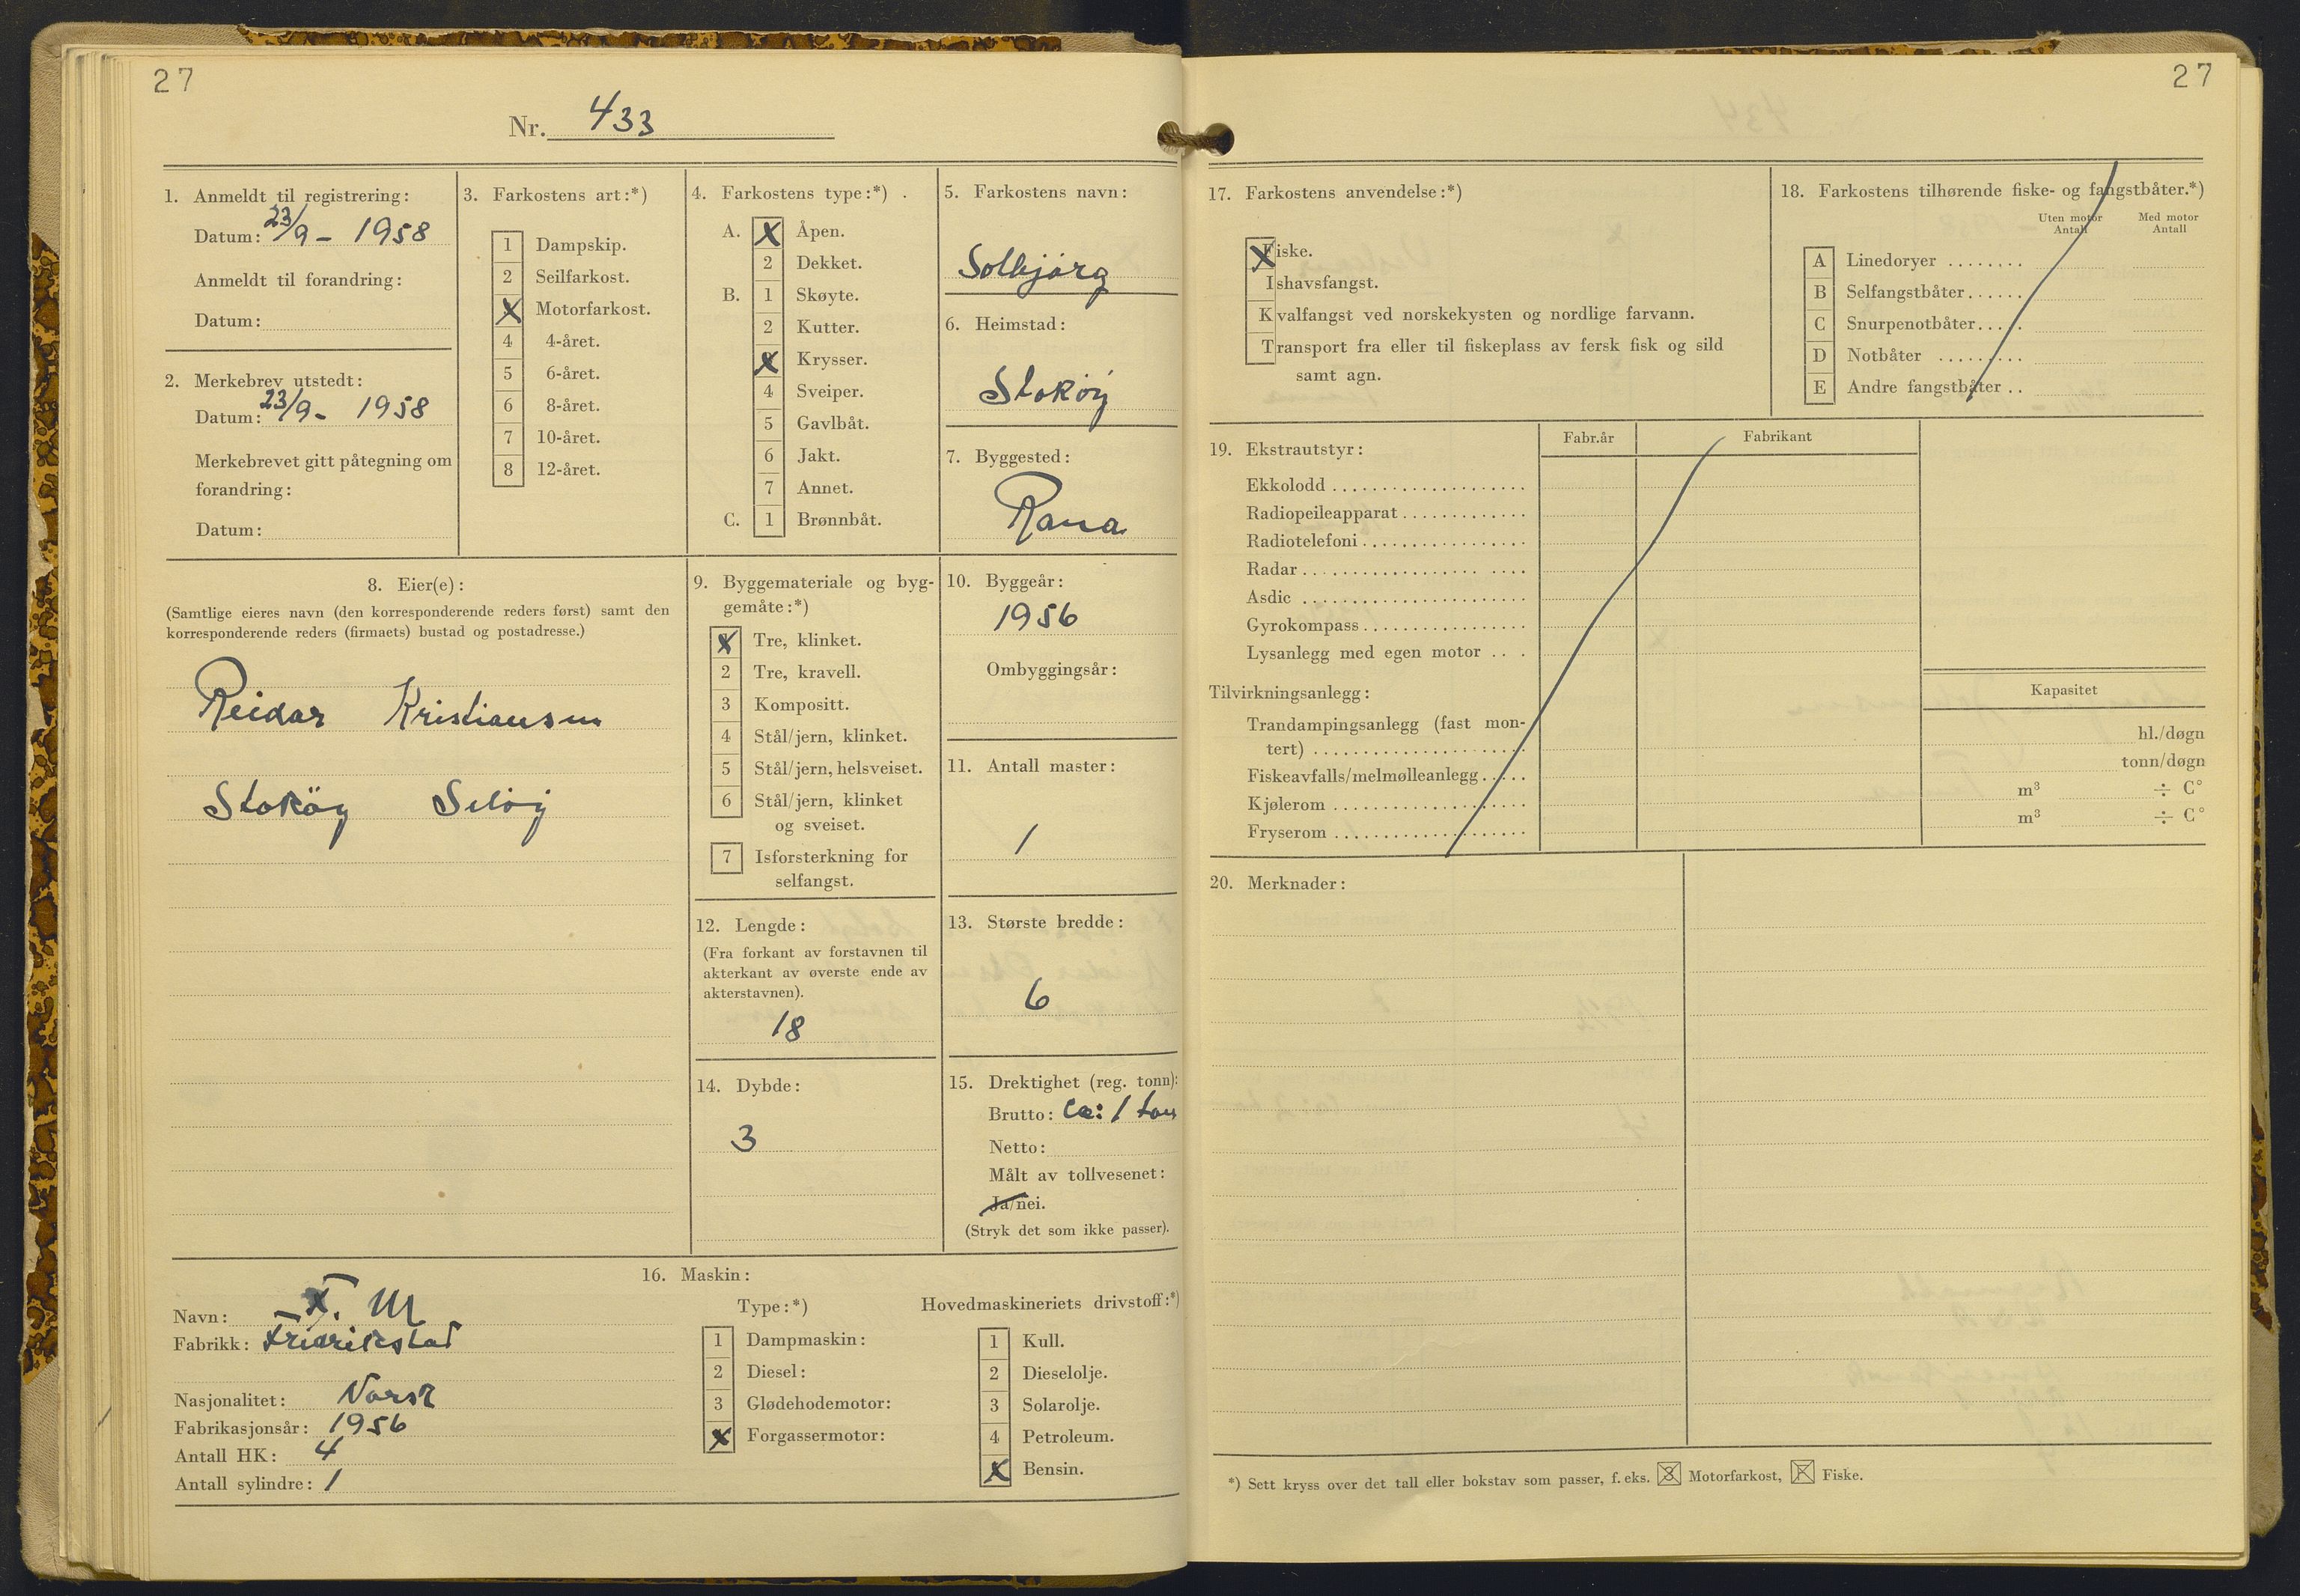 27
Nr. 433
1. Anmeldt til registrering:
Datum: 23/9 - 1958
Anmeldt til forandring:
Datum:
2. Merkebrev utstedt:
Datum: 23/9 - 1958
Merkebrevet gitt påtegning om
forandring:
Datum:
3. Farkostens art:*)
1 Dampskip.
2 Seilfarkost.
X Motorfarkost.
4 4-året.
5 6-året.
6 8-året.
7 10-året.
8 12-året.
4. Farkostens type:*)
A. X Åpen.
2 Dekket.
B. 1 Skøyte.
2 Kutter.
X Krysser.
4 Sveiper.
5 Gavlbåt.
6 Jakt.
7 Annet.
C. 1 Brønnbåt.
5. Farkostens navn:
Solbjørg
6. Heimstad:
Stokøy
7. Byggested:
Rana
8. Eier(e):
(Samtlige eieres navn (den korresponderende reders først) samt den
korresponderende reders (firmaets) bustad og postadresse.)
Reidar Kristiansen
Stokøy Seløy
9. Byggemateriale og byg-
gemåte:*)
X Tre, klinket.
2 Tre, kravell.
3 Kompositt.
4 Stål/jern, klinket.
5 Stål/jern, helsveiset.
6 Stål/jern, klinket
og sveiset.
7 Isforsterkning for
selfangst.
10. Byggeår:
1956
Ombyggingsår:
11. Antall master:
1
12. Lengde:
(Fra forkant av forstavnen til
akterkant av øverste ende av
akterstavnen).
18
13. Største bredde:
6
14. Dybde:
3
15. Drektighet (reg. tonn):
Brutto: ca: 1 ton
Netto:
Målt av tollvesenet:
Ja/nei.
(Stryk det som ikke passer).
16. Maskin:
Navn: F. M
Fabrikk: Fredrikstad
Nasjonalitet: Norsk
Fabrikasjonsår: 1956
Antall HK: 4
Antall sylindre: 1
Type:*)
1 Dampmaskin:
2 Diesel:
3 Glødehodemotor:
X Forgassermotor:
Hovedmaskineriets drivstoff:*)
1 Kull.
2 Dieselolje.
3 Solarolje.
4 Petroleum.
X Bensin.
27
17. Farkostens anvendelse:*)
Fiske.
Ishavsfangst.
Kvalfangst ved norskekysten og nordlige farvann.
Transport fra eller til fiskeplass av fersk fisk og sild
samt agn.
18. Farkostens tilhørende fiske- og fangstbåter.*)
Uten motor Med motor
Antall Antall
A Linedoryer ........
B Selfangstbåter......
C Snurpenotbåter.....
D Notbåter .........
E Andre fangstbåter ..
19. Ekstrautstyr:
Fabr.år Fabrikant
Ekkolodd ....................
Radiopeileapparat .............
Radiotelefoni .................
Radar ......................
Asdic .......................
Gyrokompass .................
Lysanlegg med egen motor ....
Tilvirkningsanlegg:
Trandampingsanlegg (fast mon-
tert) ......................
Fiskeavfalls/melmølleanlegg.....
Kjølerom ....................
Fryserom ....................
Kapasitet
hl./døgn
tonn/døgn
m³ ÷ C°
m³ ÷ C°
20. Merknader:
*) Sett kryss over det tall eller bokstav som passer, f. eks. 3 Motorfarkost, F Fiske.